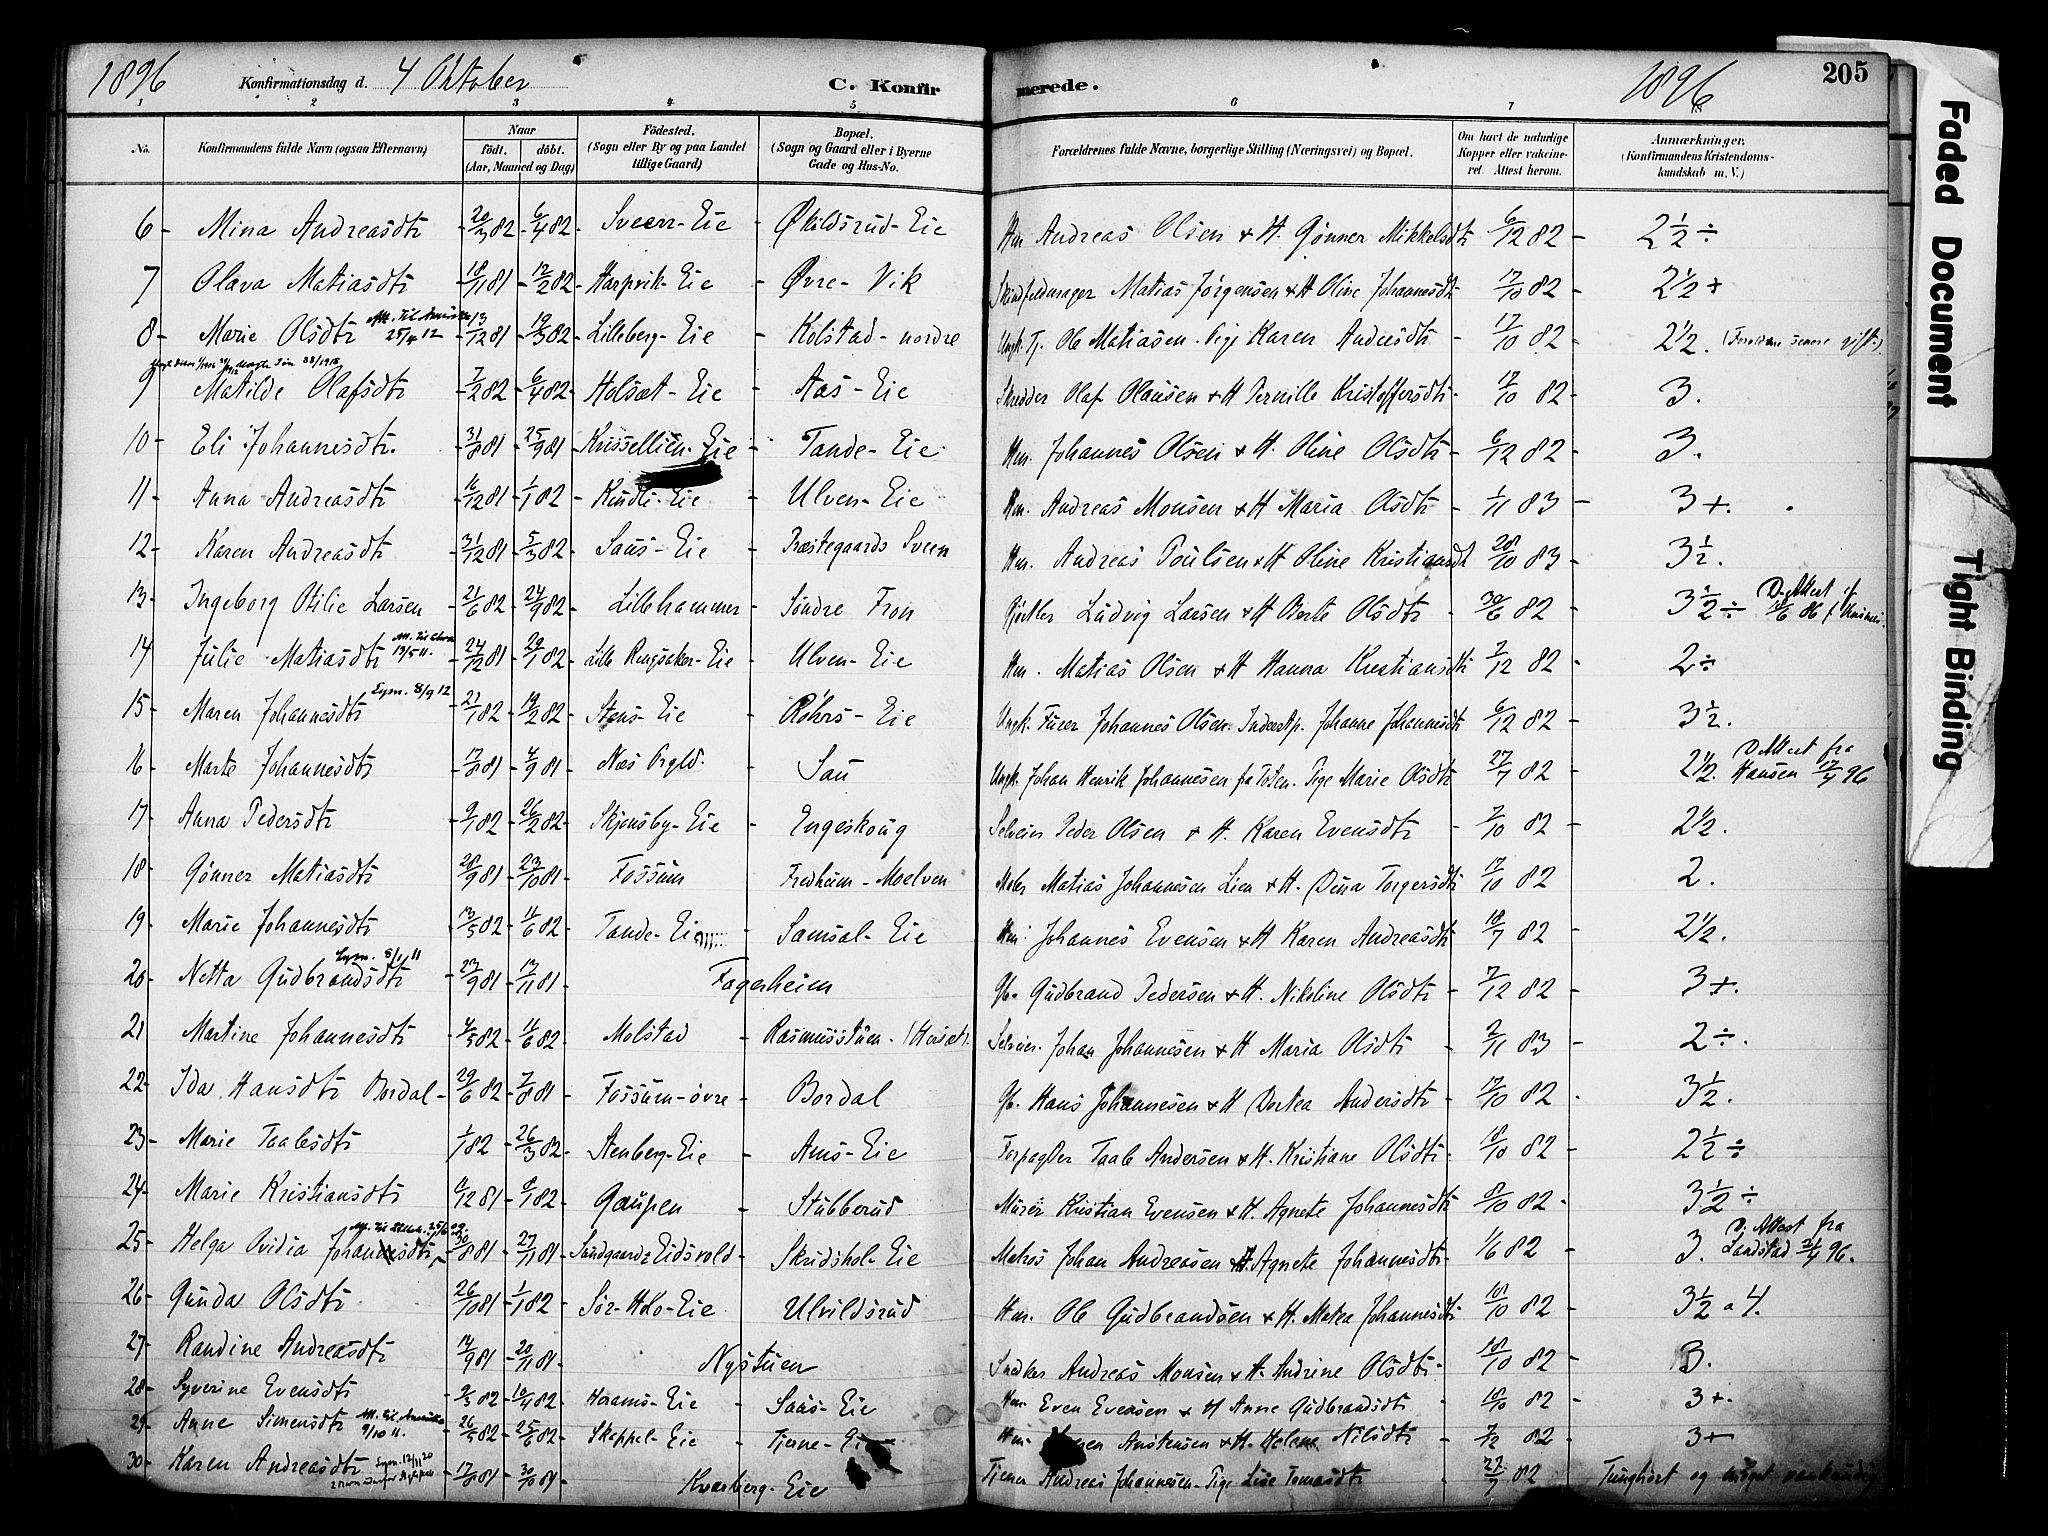 1896 Konfirmationsdag d. 4 Oktober C. Konfirmerede. 1896 205
1 2 3 4 5 6 7
No. Konfirmandens fulde Navn (ogsaa Efternavn) Naar født. døbt. (Aar, Maaned og Dag) Fødested. (Sogn eller By og paa Landet tillige Gaard) Bopæl. (Sogn og Gaard eller i Byerne Gade og Hus-No. Forældrenes fulde Navne, borgerlige Stilling (Næringsvei) og Bopæl. Om havt de naturlige Kopper eller vaccineret. Attest herom. Anmærkninger. (Konfirmandens Kristendomskundskab m. V.)
6 - Mina Andreasdtr - 20/3 82 - 6/4 82 - Sveen-Eie - Økildsrud-Eie Hm Andreas Olsen & H. Gønner Mikkelsdtr 6/12 82 - 2 1/2 ÷
7 Olava Matiasdtr - 18/11 81 - 12/2 82 - - Eie - Øvre - Vik Matias Jørgensen & H Oline Johannesdtr 17/10 82 - 2 1/2 +
8 - Marie Olsdtr Att. til Amerika 25/4 12 - 13/12 81 - 19/3 82 - Lilleberg-Eie - Kolstad - nordre Ungk. Tj. Ole Matiasen. Pige Karen Andersdtr - 17/10 82 - 2 1/2. (Forældrene senere gift.)
9 Matilde Olafsdtr - 7/2 82 - 6/4 82 - Holsæt - Eie - Aas - Eie Skredder Olaf Olausen & H Pernille Kristoffersdtr - 17/10 82 - 3.
10 - Eli Johannesdtr. - 31/8 81 - 25/9 81 - Eie - Tande - Eie Hm. Johannes Olsen & H. Oline Olsdtr - 6/12 82 - 3.
11 - Anna Andreasdtr - 11/12 81 - 1/1 82 - Kindli-Eie - Ulven - Eie Hm. Andreas Monsen & H Maria Olsdtr - 1/11 83 - 3 +.
12 - Karen Andreasdtr - 31/12 81 - 5/3 82 - Saus - Eie - Præstegaards Sveen Hm. Andreas Poulsen & H Oline Kristiansdtr 28/10 83 - 3 1/2.
13 - Ingeborg Otilie Larsen - 21/6 82 - 24/9 82 - Lillehammer - Søndre Fron Gjørtler Ludvig Larsen & H Berte Olsdtr - 30/6 82 - 3 1/2 ÷ D. Attest
14 Julie Matiasdtr 13/5 11. - 24/12 81 - 29/1 82 - Lille Ringsaker-Eie - Ulven - Eie Hm. Matias Olsen & H Hanna Kristiansdtr 7/12 82 - 2 ÷
15 - Maren Johannesdtr Eym. 8/9 12 - 21/1 82 - 19/2 82 - Stens - Eie - Røhrs - Eie Ungk. Furer Johannes Olsen. Inderstp. Johanne Johannesdtr 6/12 82 - 3 1/2.
16 - Marte Johannesdtr - 17/8 81 - 4/9 81 - Næs Prgld. - Sau Ungk. Johan Henrik Johannesen fra Toten. Pige Marie Olsdtr 27/7 82 - 2 1/2. D. Attest fra Hansen 17/4 96
17 - Anna Pedersdtr - 9/1 82 - 26/2 82 - Skjønsby-Eie - Engeskoug Selveier Peder Olsen & H. Karen Evensdtr - 7/10 82 - 2 1/2.
18 - Gønner Matiasdtr - 28/9 81 - 23/10 81 - Fossum Fredheim - Moelven Maler Matias Johannesen Lien & H. Dina Torgersdtr 17/10 82 2.
19 - Marie Johannesdtr - 13/5 82 - 11/6 82 - Tande - Eie - Samsal - Eie Hm. Johannes Evensen & H Karen Andreasdtr 18/7 82 - 2 1/2.
20 - Netta Gudbrandsdtr Eym. 8/1 11 - 23/9 81 - 13/11 81 - Fagerheim Gb. Gudbrand Pedersen & H. Nikoline Olsdtr - 7/12 82 - 3 +.
21 Martine Johannesdtr - 4/5 82 - 11/6 82 - Molstad - Rasmusstuen. Selveier. Johan Johannesen & H Maria Olsdtr - 2/11 83 - 2 ÷.
22 - Ida Hansdtr Bordal - 29/6 82 - 7/8 81 - Fossum-øvre - Bordal Gb. Hans Johannesen & H Dortea Andersdtr - 17/10 82 - 3 1/2.
23 - Marie Taalesdtr 1/1 82 - 26/3 82 - Stenberg-Eie - Ams - Eie Forpagter Taale Andersen & H. Kristiane Olsdtr - 18/10 82 - 2 1/2 ÷
24 - Marie Kristiansdtr 8/12 81 - 8/1 82 - Gaupen - Stubberud Murer Kristian Evensen & H. Agnete Johannesdtr 8/10 82 - 3 1/2 ÷
25 - Helga Ovidia Johansdtr - 30/8 81 - 27/11 81 - Sandgaard Eidsvold - Skridshol - Eie Matros Johan Andreasen & H. Agnete Johannesdtr - 1/6 82 - 3. D. Attest fra Landstad 21/4 96.
26 - Gunda Olsdtr 26/10 81 - 1/1 82 - Sør-Holo-Eie - Ulvildsrud Hm. Ole Gudbrandsen & H. Matea Johannesdtr 18/10 82 - 3 1/2 a 4.
27 - Randine Andreasdtr 14/9 81 - 20/11 81 - Nystuen Snedker Andreas Monsen & H. Andrine Olsdtr - 18/10 82 - 3.
28 - Syverine Evensdtr - 9/3 82 - 10/4 82 - Haams - Eie - Saus - Eie Hm Even Evensen & H Anne Gudbrandsdtr 18/10 82 - 3 +.
29 - Anne Simensdtr Att. til Amerika 9/10 11. - 26/5 82 - 25/6 82 - Skappel-Eie - Tjerne - Eie Hm. Anstensen & H. Helene Nilsdtr - 7/12 82 - 3 +
30 - Karen Andreasdtr Eym. 12/11 20 - 17/8 81 - 30/10 81 - Kvarberg - Eie Tjener Andreas Johannesen - Pige Lise Tomasdtr 27/7 82 Tunghørt og meget vankundig
Faded Document
Tight Binding